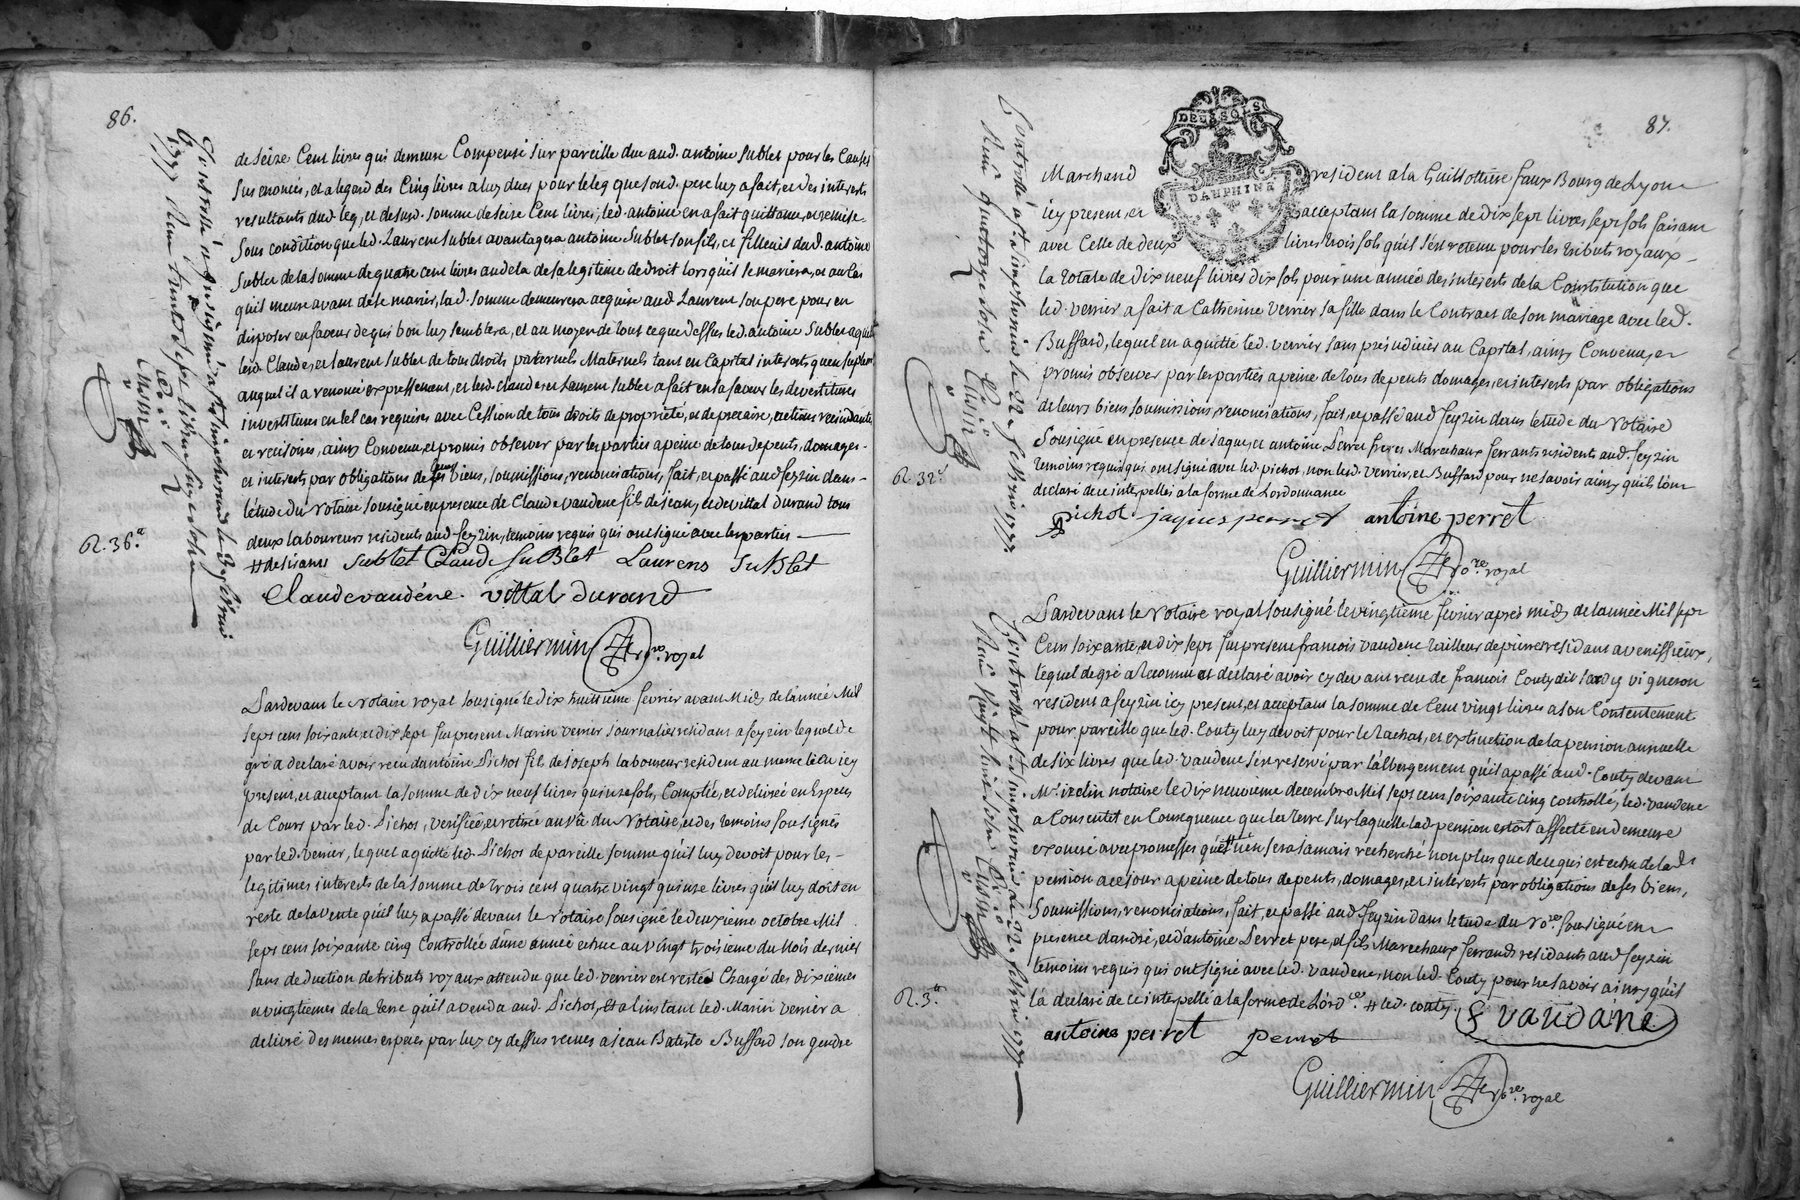 86.
de seize Cent livres qui demeure Compensé sur pareille due aud. antoine Sublet pour les Causes
sus enoncés, et a legard des Cinq livres a luy dues pour le leg que sond. pere luy a fait, et des interets
resultants dud. leg, et de sud. somme de seize Cent livres, led. antoine en a fait quittance, et remise
sous condition que led. Laurent Sublet avantagera antoine Sublet son fils, et filleul dud. antoine
Sublet de la somme de quatre cent livres audela de sa legitime de droit lors qu'il se mariera, et au cas
qu'il meure avant de se marier, lad. somme demeurera acquise aud. Laurent son pere pour en
disposer en faveur de qui bon luy semblera, et au moyen de tout ce que dessus led. antoine Sublet a quitté
lesd. Claude, et laurent Sublet de tous droits paternels Maternels tant en Capital interets, qu'en suplem.
auquel il a renoncé expressement, et lesd. claude, et Laurent Sublet a fait en sa faveur les devestitures
investitures en tel cas requises avec Cession de tous droits de propriété, et de precaire, actions rescindantes
et rescisoires, ainsy Convenu, et promis observer par les parties a peine de tous depents, domages
et interets par obligations de leurs biens, soumissions, renonciations, fait, et passé aud. feyzin dans
l'étude du Notaire soussigné en presence de Claude vaudene fils de jean, et de vittal durand tous
deux laboureurs residents aud. feyzin, temoins requis qui ont signé avec les parties
Sublet Claude Sublet Laurens Sublet
Claude vaudéne. vittal durand
Guilliermin no.re royal
R. 36.s
Controllé a St simphorien le
1777 Reçu trente sept livres
Cusin
Pardevant le Notaire royal soussigné le dix huitieme fevrier avant Midy de lannée Mil
sept cent soixante et dix sept fut present Marin verrier journalier residant a feyzin lequel de
gré a declaré avoir reçu d'antoine Pichot fils de joseph laboureur resident au meme lieu icy
present, et acceptant la somme de dix neuf livres quinze sols, Comptée, et delivrée en Especes
de Cours par led. Pichot, verifiée, et retirée au vû du Notaire, et des temoins soussignés
par led. verrier, lequel a quitté led. Pichot de pareille somme qu'il luy devoit pour les
legitimes interets de la somme de trois cent quatre vingt quinze livres qu'il luy doit en
reste de la vente qu'il luy a passé devant le Notaire soussigné le deuxieme octobre Mil
sept cent soixante cinq Controllée d'une année echue au vingt troisieme du Mois dernier
sans deduction de tributs royaux attendu que led. verrier est resté Chargé des dixiemes
et vingtiemes de la terre qu'il a vendu aud. Pichot, et a linstant led. Marin verrier a
delivré des memes especes par luy cy dessus recues a jean Batiste Buffard son gendre
87.
DEUX SOLS
DAUPHINÉ
Marchand resident a la Guillottiere faux Bourg de Lyon
icy present, et acceptant la somme de dix sept livres sept sols faisant
avec Celle de deux livres trois sols qu'il s'est retenu pour les tributs royaux
la totale de dix neuf livres dix sols pour une année des interets de la Constitution que
led. verrier a fait a Catherine verrier sa fille dans le Contract de son mariage avec led.
Buffard, lequel en a quitté led. verrier sans prejudicier au Capital, ainsy Convenu, et
promis observer par les parties a peine de tous depents domages, et interets par obligations
de leurs biens soumissions, renonciations, fait, et passé aud. feyzin dans letude du Notaire
Soussigné en presence de jaque, et antoine Perret freres Marechaux ferrants residents aud. feyzin
temoins requis qui ont signé avec led. pichot, non lesd. verrier, et Buffard pour ne savoir ainsy qu'ils l'ont
declaré de ce interpellés a la forme de Lordonnance
pichot jaques perret antoine perret
Guilliermin no.re royal
R. 32.s
Controllé a St simphorien le 22 fevrier 1777
Reçu quatorze sols
Cusin
Pardevant le Notaire royal soussigné le vingtieme fevrier apres midy de lannée Mil sept
Cent soixante, et dix sept fut present francois vaudene tailleur de pierre residant a venissieux,
lequel de gré a reconnu et declaré avoir cy devant reçu de francois Couty dit vigneron
resident a feyzin icy present, et acceptant la somme de Cent vingt livres a son Contentement
pour pareille que led. Couty luy devoit pour le Rachat, et extinction de la pension annuelle
de six livres que led. vaudene s'est reservé par l'albergement qu'il a passé aud. Couty devant
M.e notaire le dix neuvieme decembre Mil sept cent soixante cinq controllé, led. vaudene
a Consentit en Consequence que la terre sur laquelle lad. pension estoit affectée en demeure
exonerée avec promesses qu'il n'en sera jamais recherché non plus que de ce qui est echu de lad.
pension a ce jour a peine de tous depents, domages, et interets par obligations de ses biens,
Soumissions, renonciations, fait, et passé aud. feyzin dans letude du No.re soussigné en
presence d'andré, et d'antoine Perret pere, et fils Marechaux ferrands residants aud. feyzin
temoins requis qui ont signé avec led. vaudene, non led. Couty pour ne savoir ainsy qu'il
la declaré de ce interpellé a la forme de Lord.ce # led. couty
f vaudane
antoine perret Perret
Guilliermin no.re royal
R. 3.s
Controllé a St simphorien le 22 fevrier 1777
Reçu vingt huit sols
Cusin